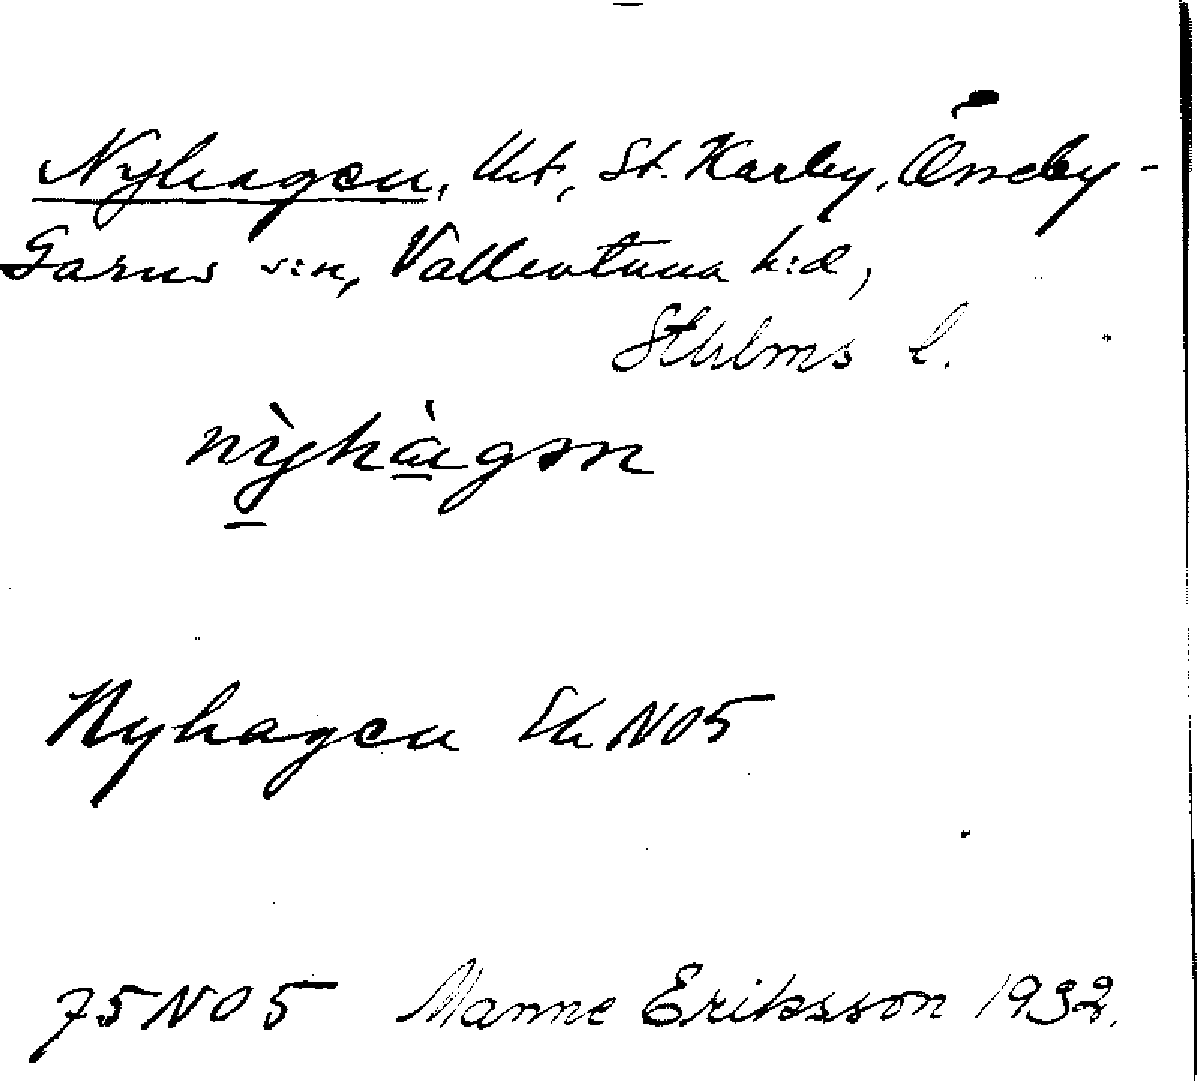 Nyhagen, lht, St. Karby, Össeby-
Garns s:n, Vallentuna h:d,
Sthlms l.
nỳhàgən
Nyhagen Ek NO5
75NO5 Manne Eriksson 1932.